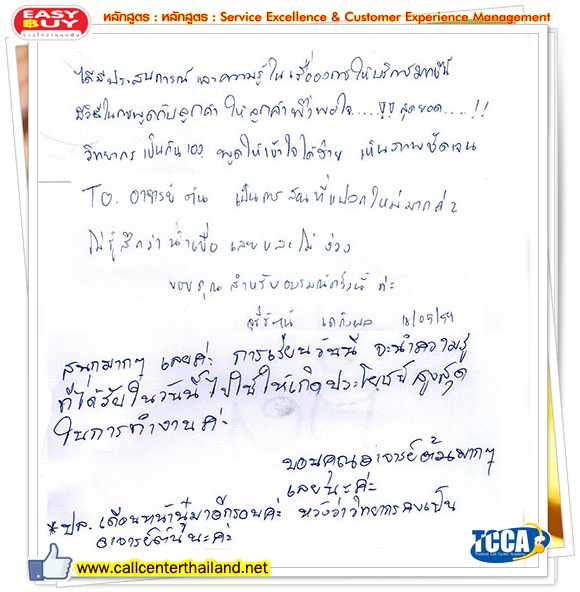 EASY BUY
หลักสูตร : หลักสูตร : Service Excellence & Customer Experience Management
ได้มีประสบการณ์ และความรู้ใน เรื่องของการให้บริการมากขึ้น
มีวิธีในการพูดกับลูกค้า ให้ลูกค้าพึงพอใจ.....!! สุดยอด.....!!
วิทยากร เป็นกันเอง พูดให้เข้าใจได้ง่าย เห็นภาพชัดเจน
TO. อาจารย์ ต้น เป็นการสอนที่แปลกใหม่มากค่ะ
ไม่รู้สึกว่าน่าเบื่อ เลย และไม่ง่วง
ขอบคุณสำหรับอบรมครั้งนี้ ค่ะ
สุรีรัตน์ 18/05/54
สนุกมากๆ เลยค่ะ การเรียนวันนี้ จะนำความรู้
ที่ได้รับในวันนี้ไปใช้ให้เกิดประโยชน์สูงสุด
ในการทำงานค่ะ
ขอบคุณอาจารย์ต้นมากๆ
เลยนะค่ะ
*ปล. เดือนหน้าหนูมาอีกรอบค่ะ หวังว่าวิทยากรคงเป็น
อาจารย์ต้นนะค่ะ
TCCA
Thailand Call Center Academy
www.callcenterthailand.net